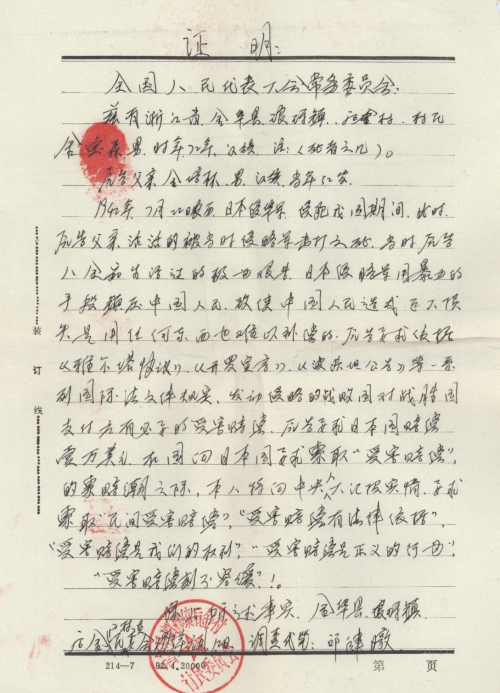 证 明：
全国人民代表大会常务委员会：
兹有浙江省金华县琅琊镇 村 村民
金 男 时年72年，汉族 注：（死者之儿）。
原告父亲金 林，男，汉族，当年52岁
月 日 日本侵华军侵犯我国期间，此时
原告父亲活活的被当时侵略军毒打之死，当时原告
人全家生活过的极 日本侵略军用 的
手段 中国人民，致使中国人民造成巨大损
失是用任何东西也难以补偿的，原告要求依据
《雅尔塔协议》《开罗宣言》《波茨坦公告》等一系
列国际法文律规定，发动侵略的战败国对战胜国
支付应有必要的受害赔偿，原告要求日本国赔偿
壹万美元，在国向日本国要求索取“受害赔偿”，
的索赔潮之际，本人特向中央人大汇报实情，要求
索取“民间受害赔偿”，“受害赔偿有法律依据”，
“受害赔偿是我们的权利”，“受害赔偿是正义的行为”，
“受害赔偿刻不容缓”！。
事实 金华县琅琊镇
调查代笔：邱
村民委员会
装 订 线
214—7 92.4.20000 第 页